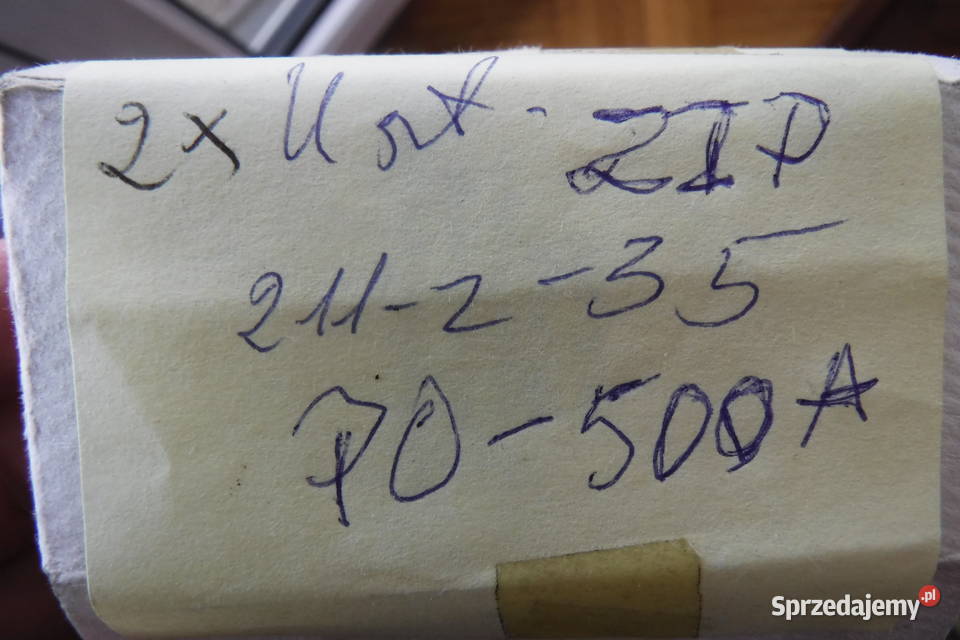 2x Uort. ZIP
211-2-35
70-500A
Sprzedajemy.pl